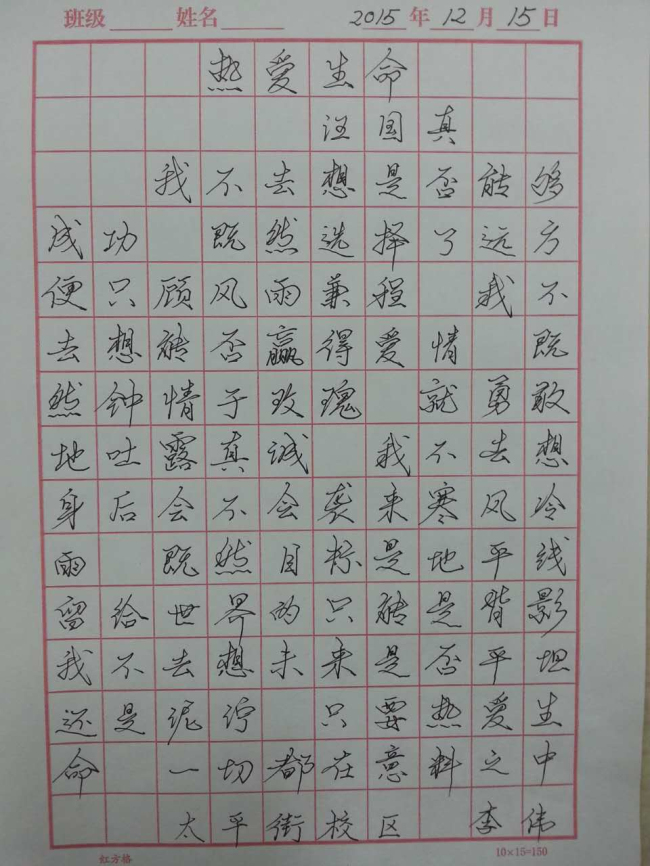 班级 姓名 2015年12月15日
热爱生命
汪国真
我不去想是否能够
成功 既然选择了远方
便只顾风雨兼程 我不
去想能否赢得爱情 既
然钟情于玫瑰 就勇敢
地吐露真诚 我不去想
身后会不会袭来寒风冷
雨 既然目标是地平线
留给世界的只能是背影
我不去想未来是否平坦
还是泥泞 只要热爱生
命 一切都在意料之中
太平街校区 李伟
红方格 10×15=150